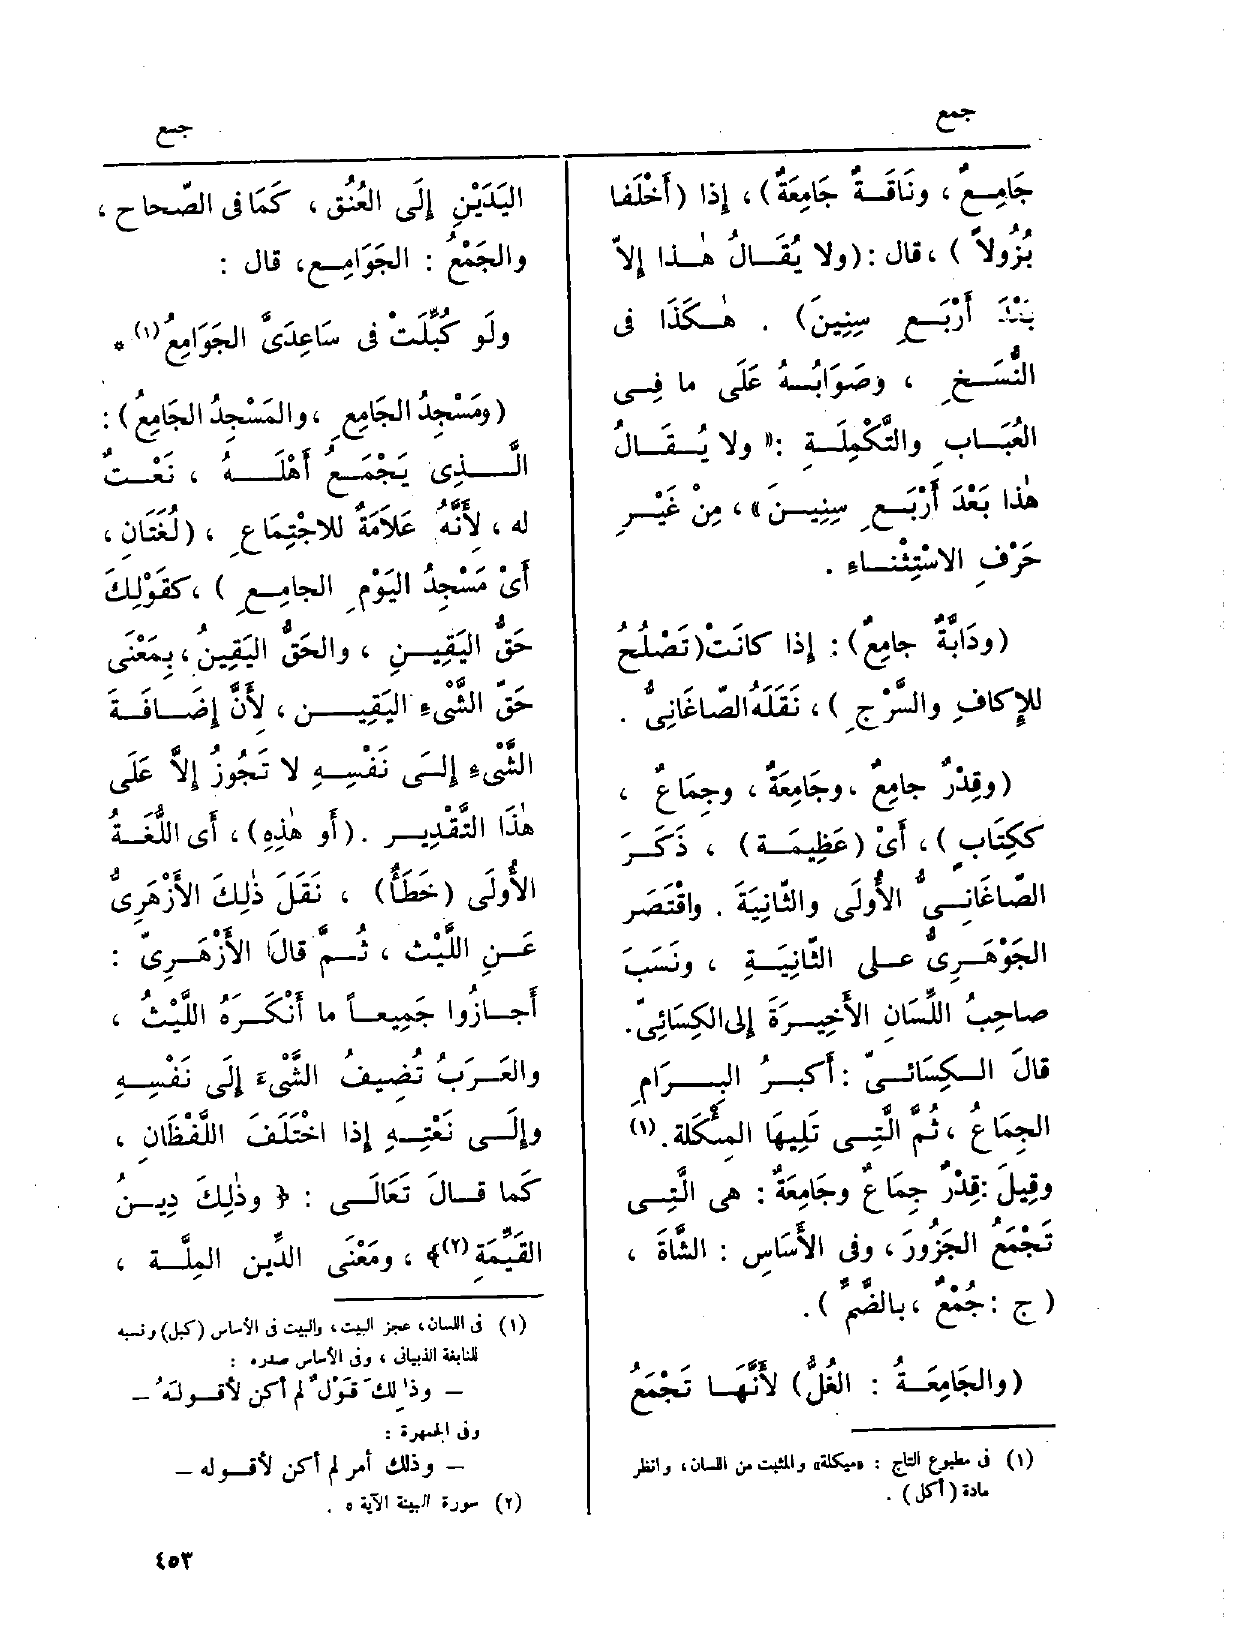 جمع
جَامِـعٌ ، ونَاقَـةٌ جَامِعَةٌ) ، إِذا (أَخْلَفا
بُزُولاً ) ، قال : (ولا يُقَـالُ هٰـذا إِلاّ
بَعْدَ أَرْبَـعِ سِنِينَ) . هٰـكَذَا فى
النُّسَـخِ ، وصَوَابُـهُ عَلَى ما فِـى
العُبَـابِ والتَّكْمِلَـةِ : « ولا يُـقَـالُ
هٰذا بَعْدَ أَرْبَـعِ سِنِيـنَ » ، مِنْ غَيْـرِ
حَرْفِ الاسْتِثْنـاءِ .
(ودَابَّةٌ جامِعٌ) : إِذا كانَتْ (تَصْلُحُ
للإِكافِ والسَّرْجِ ) ، نَقَلَهُ الصّاغَانِىُّ .
(وقِدْرٌ جامِعٌ ، وجَامِعَةٌ ، وجِمَاعٌ ،
ككِتَابٍ ) ، أَىْ (عَظِيمَـة) ، ذَكَـرَ
الصّاغَانِـىُّ الأُولَى والثّانِيَةَ . واقْتَصَر
الجَوْهَـرِىُّ علـى الثّانِيَـةِ ، ونَسَبَ
صاحِبُ اللِّسَانِ الأَخِيـرَةَ إِلى الكِسَائِىّ.
قالَ الـكِسَائـىّ : أَكبـرُ البِـرَامِ
الجِمَاعُ ، ثُمَّ الَّتِـى تَلِيهَا المِئْكَلة. (١)
وقِيلَ : قِدْرٌ جِمَاعٌ وجَامِعَةٌ : هى الَّتِـى
تَجْمَعُ الجَزُورَ ، وفى الأَسَاسِ : الشَّاةَ ،
( ج : جُمْعٌ ، بالضَّمّ ) .
(والجَامِعَـةُ : الغُلُّ) لأَنَّهَـا تَجْمَعُ
(١) فى مطبوع التاج : «ميكلة» والمثبت من اللسان، وانظر
مادة (أكل) .
جمع
اليَدَيْنِ إِلَى العُنُقِ ، كَمَا فى الصّحاحِ ،
والجَمْعُ : الجَوَامِـع، قال :
ولَو كُبِّلَتْ فى سَاعِدَىَّ الجَوَامِعُ (١) *
(ومَسْجِدُ الجَامِعِ ، والمَسْجِدُ الجَامِعُ) :
الَّـذِى يَجْمَـعُ أَهْلَـهُ ، نَعْـتٌ
له ، لأَنَّهُ عَلاَمَةٌ للاجْتِمَاعِ ، (لُغَتَانِ ،
أَىْ مَسْجِدُ اليَوْمِ الجامِـعِ ) ، كقَوْلِكَ
حَقُّ اليَقِيـنِ ، والحَقُّ اليَقِينُ ، بِمَعْنَى
حَقّ الشَّىْءِ اليَقِيـنِ ، لِأَنَّ إِضَـافَـةَ
الشَّىْءِ إِلـى نَفْسِـهِ لا تَجُوزُ إِلاَّ عَلَى
هٰذَا التَّقْدِيـرِ . (أَو هٰذِهِ) ، أَى اللُّغَـةُ
الأُولَى (خَطَأٌ) ، نَقَلَ ذٰلِكَ الأَزْهَرِىُّ
عَـنِ اللَّيْث ، ثُـمَّ قالَ الأَزْهَـرِىّ :
أَجـازُوا جَمِيعـاً ما أَنْكَـرَهُ اللَّيْثُ ،
والعَـرَبُ تُضِيفُ الشَّىْءَ إِلَى نَفْسِـهِ
وإِلَـى نَعْتِـهِ إِذا اخْتَلَفَ اللَّفْظَانِ ،
كَمَا قـالَ تَعَالَـى : ﴿ وذٰلِكَ دِيـنُ
القَيِّمَةِ (٢)﴾ ، ومَعْنَى الدِّينِ المِلَّـة ،
(١) فى اللسان، عجز البيت، والبيت فى الأساس (كبل) ونسبه
للنابغة الذبيانى ، وفى الأساس صدره :
– وذٰلِكَ قَوْلٌ لم أكن لأقـولَهُ –
وفى الجمهرة :
– وذلك أمر لم أكن لأقـوله –
(٢) سورة البينة الآية ٥ .
٤٥٣